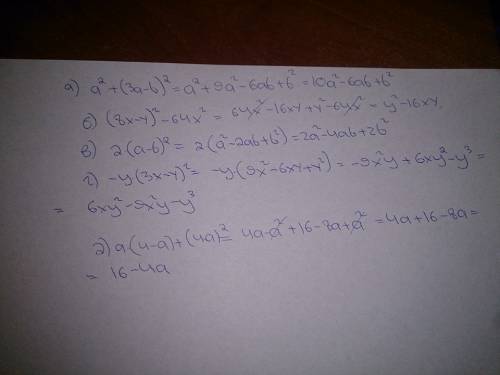 а) a²+(3a-b)²=a²+9a²-6ab+b²=10a²-6ab+b²
б) (8x-y)²-64x²=64x²-16xy+y²-64x²=y²-16xy.
в) 2(a-b)²=2(a²-2ab+b²)=2a²-4ab+2b²
г) -y(3x-y)²=-y(9x²-6xy+y²)=-9x²y+6xy²-y³=
=6xy²-9x²y-y³
2) a(4-a)+(4a)²=4a-a²+16-8a+a²=4a+16-8a=
=16-4a